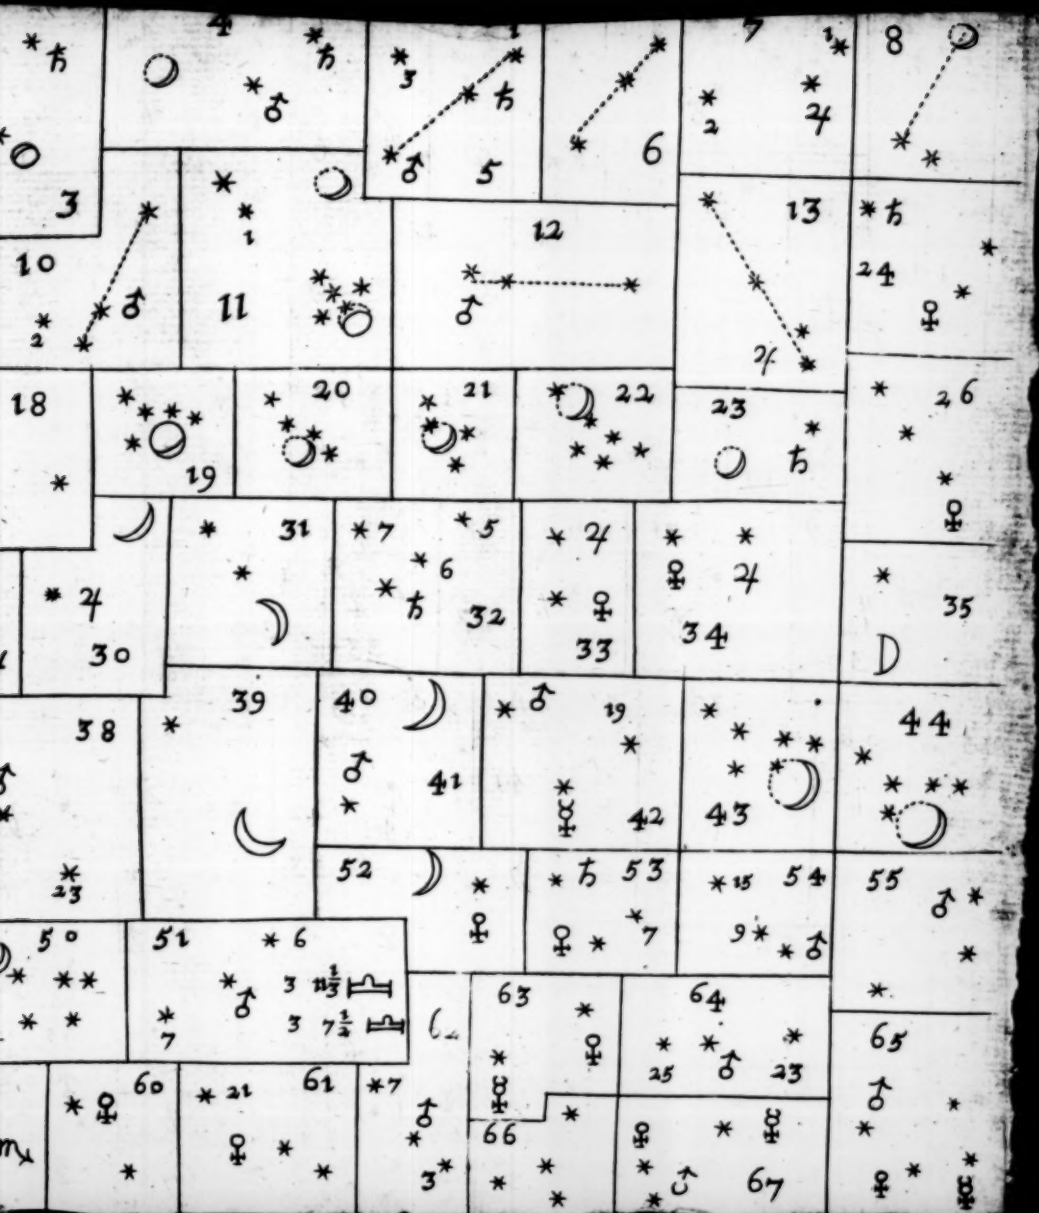 ♄
3
4
♄
♂
1
3
♄
♂
5
6
7
1
2
♃
8
10
♂
2
1
11
12
♂
13
♃
♄
24
♀
18
19
20
21
22
23
♄
26
♀
♃
30
31
7
5
6
♄
32
♃
♀
33
♀
♃
34
35
38
♂
23
39
40
♂
41
♂
19
☿
42
43
44
52
♀
♄
53
♀
7
15
54
9
♂
55
♂
50
51
6
♂
7
3 11⅓ ♎
3 7½ ♎
63
♀
☿
64
25
♂
23
65
♂
♀
☿
♏
60
♀
21
61
♀
7
♂
3
66
♀
☿
♂
67